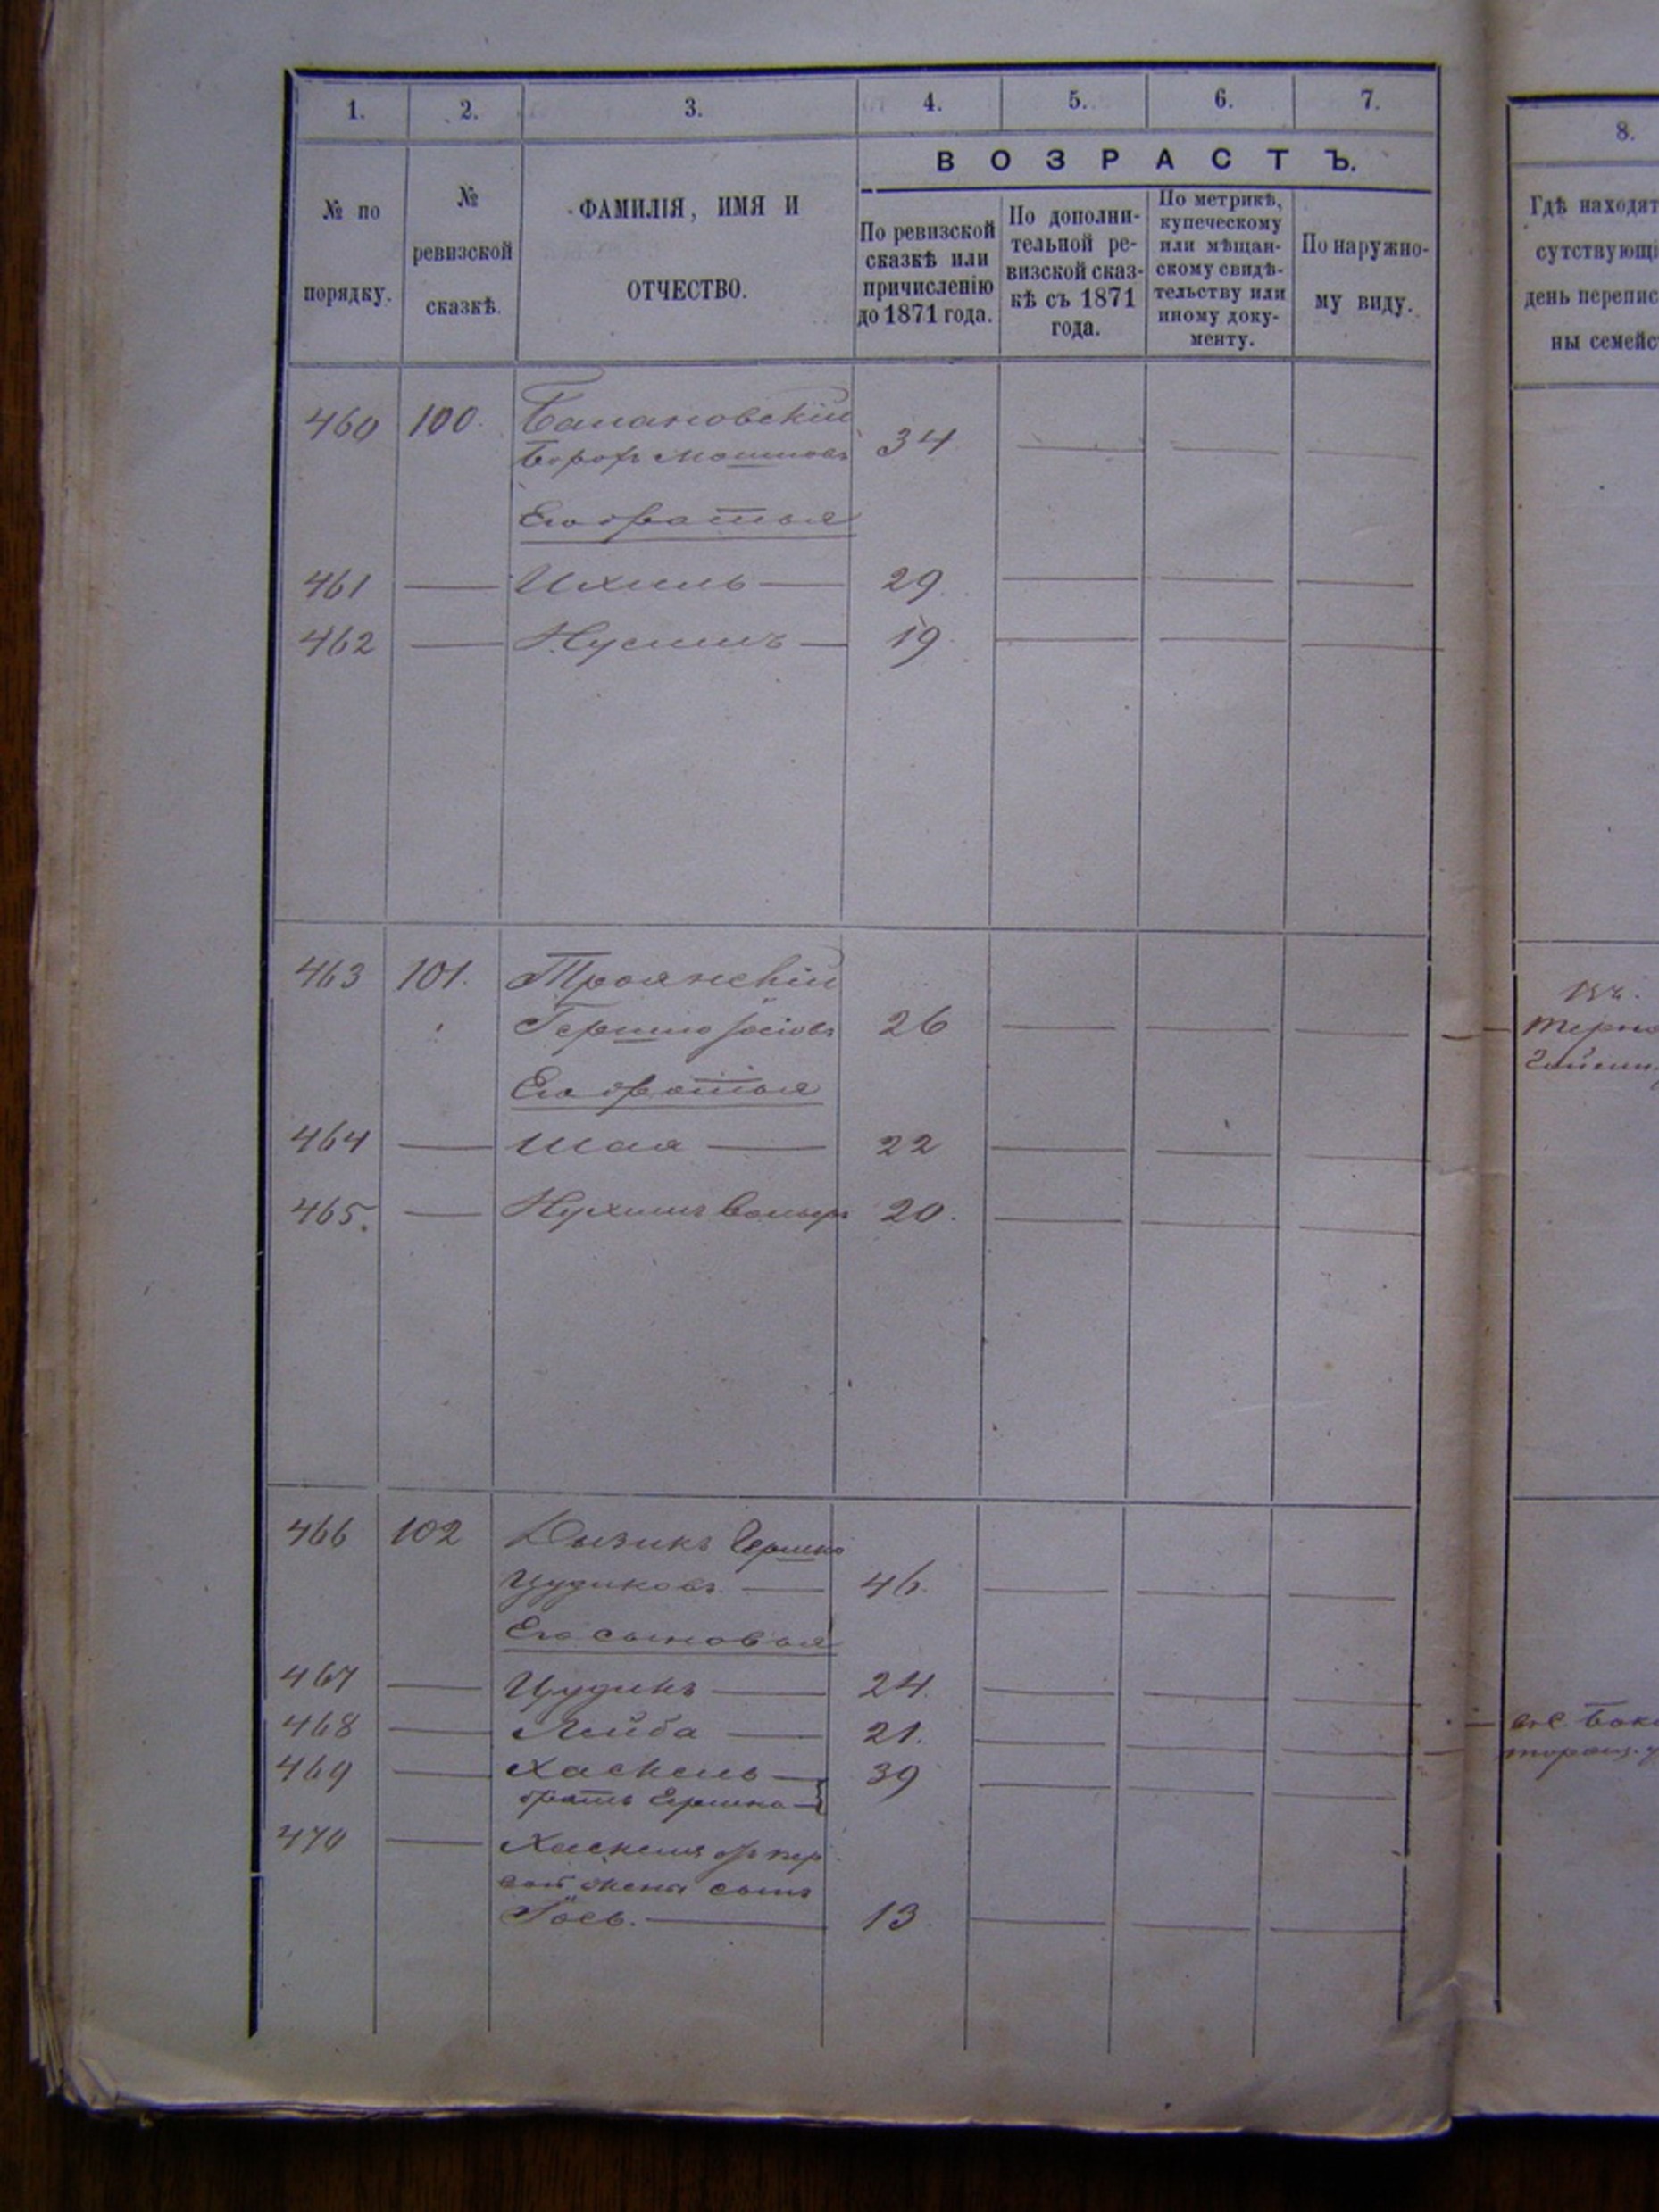 1. 2. 3. 4. 5. 6. 7.
ВОЗРАСТЪ.
№ по
порядку.
№
ревизской
сказкѣ.
ФАМИЛІЯ, ИМЯ И
ОТЧЕСТВО.
По ревизской
сказкѣ или
причисленію
до 1871 года.
По дополни-
тельной ре-
визской сказ-
кѣ съ 1871
года.
По метрикѣ,
купеческому
или мѣщан-
скому свидѣ-
тельству или
иному доку-
менту.
По наружно-
му виду.
460 100.
34
Его братья
461 — Ихиль — 29. — — —
462 — Нусинъ — 19. — — —
463 101. Троянскій
Гершко Іосіовъ 26 — — —
Его братья
464 — Шая — 22 — — —
465. — Нухимъ 20. — — —
466 102 Дызикъ Гершко
Цудиковъ. — 46. — — —
Его сыновья
467 — Цудикъ — 24. — — —
468 — Лейба — 21. — — —
469 — Хаскель — 39 — — —
братъ Гершка —
470 — Хаскеля пер
жены сынъ
Іось. — 13. — — —
8.
Гдѣ находят
сутствующі
день перепис
ны семейс